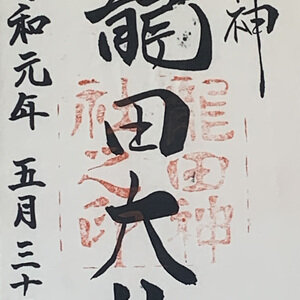 神
龍田大
和元年 五月三十
龍田神
神之印